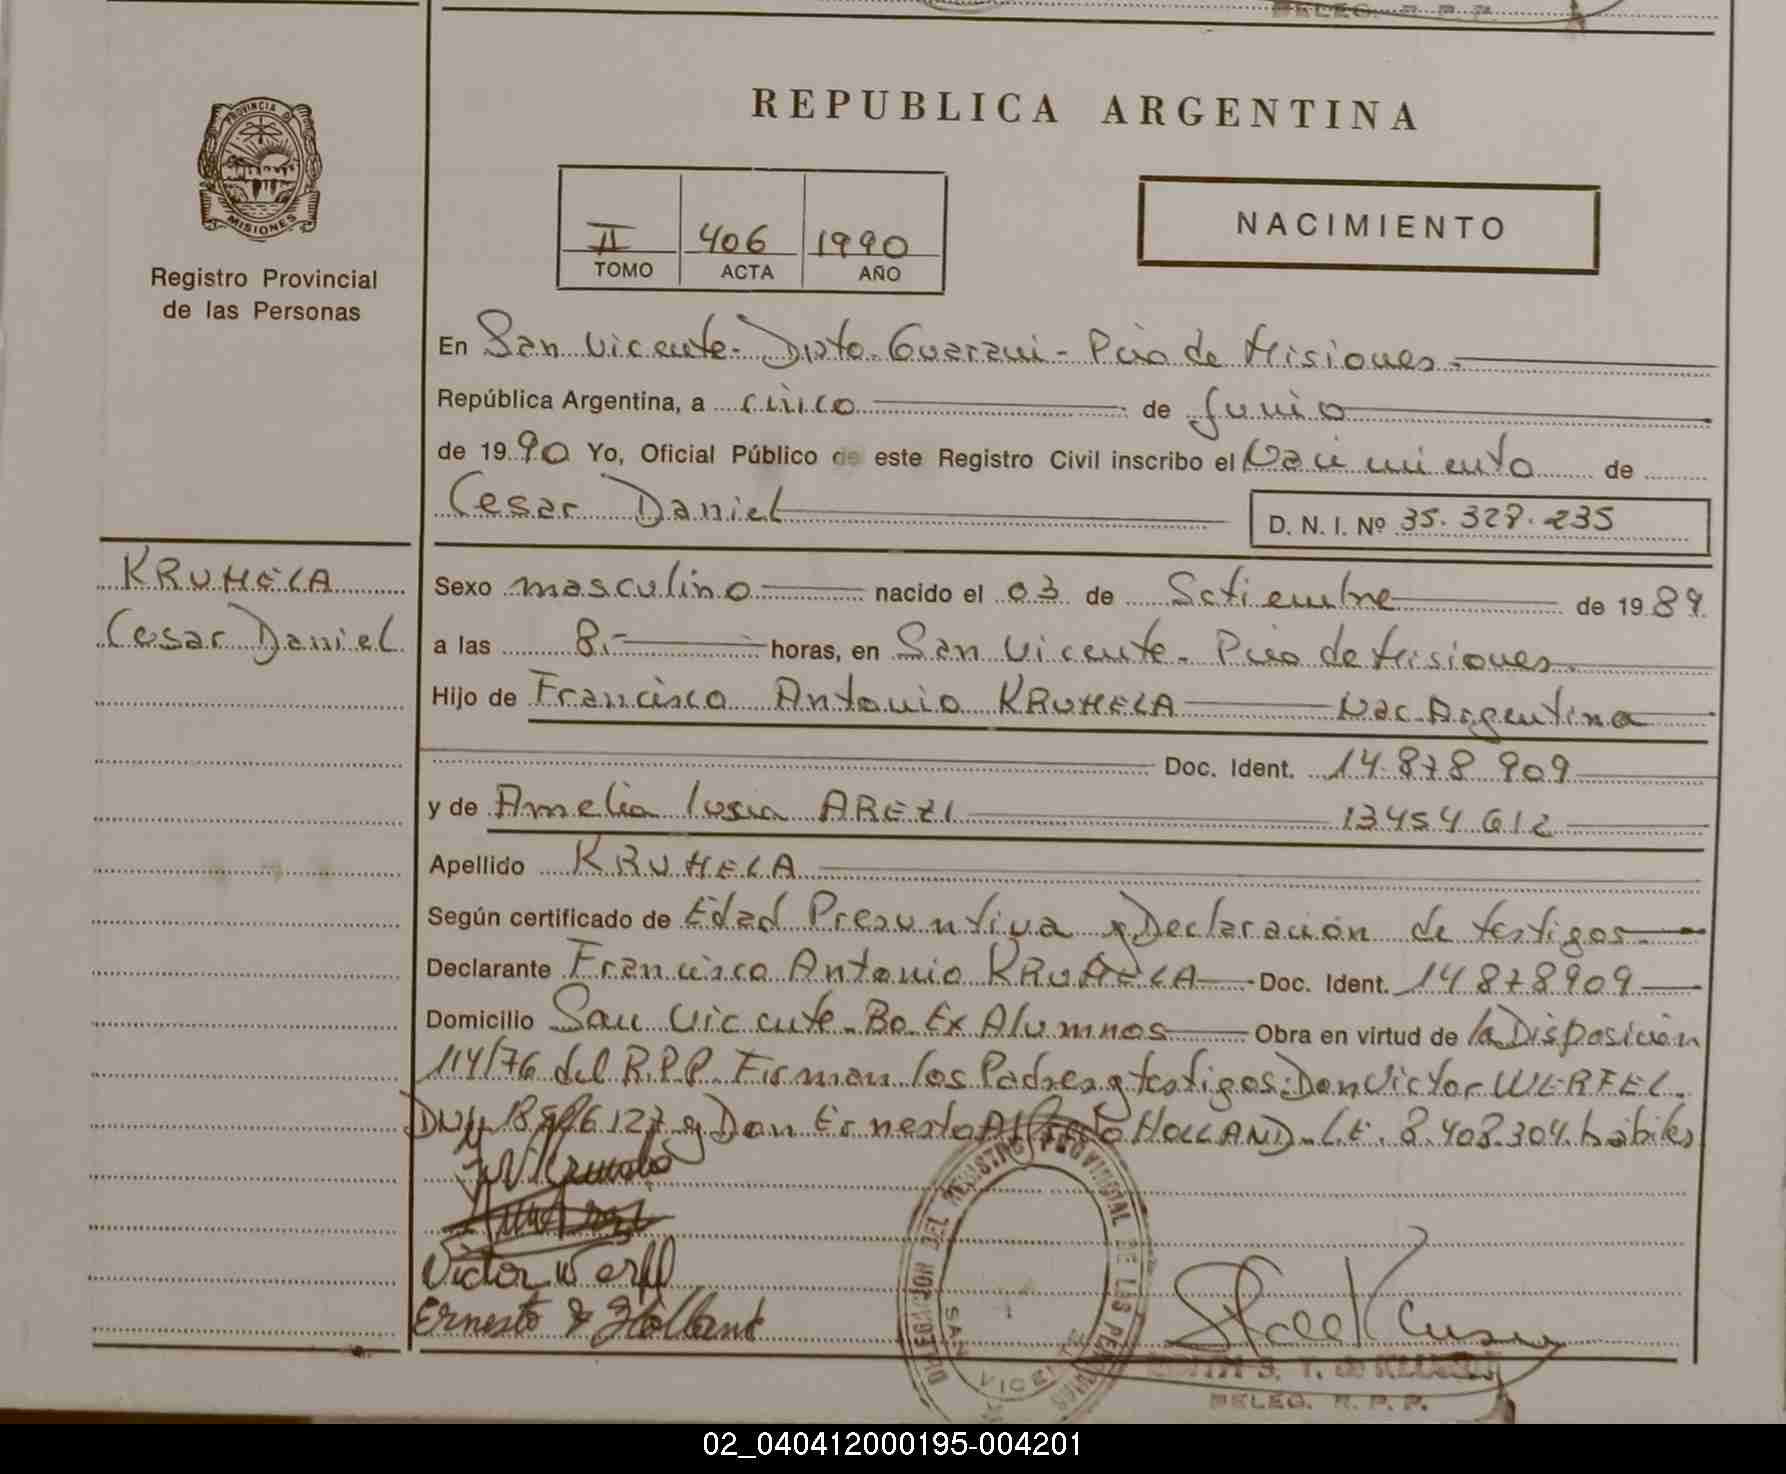 DELEG. R. P. P.
PROVINCIA DE
MISIONES
Registro Provincial
de las Personas
REPUBLICA ARGENTINA
II 406 1990
TOMO ACTA AÑO
NACIMIENTO
En San Vicente - Dpto. Guarani - Pcia de Misiones -
República Argentina, a cinco de Junio
de 1990 Yo, Oficial Público de este Registro Civil inscribo el Nacimiento de
Cesar Daniel D. N. I. Nº 35.327.235
KRUHELA
Cesar Daniel
Sexo masculino nacido el 03 de Setiembre de 1989
a las 8.- horas, en San Vicente - Pcia de Misiones
Hijo de Francisco Antonio KRUHELA Nac. Argentina
Doc. Ident. 14.878.909
y de Amelia Lusia AREZI 13454.612
Apellido KRUHELA
Según certificado de Edad Presuntiva y Declaración de testigos.-
Declarante Francisco Antonio KRUHELA Doc. Ident. 14878909
Domicilio San Vicente - Bo. Ex Alumnos Obra en virtud de la Disposición
114/76 del R.P.P. Firman los Padres y testigos: Don Victor WERFEL.
DNI y Don Ernesto HOLLAND - L.E. 8.408.304. habiles
Victor Werfel
Ernesto Holland
DELEGACION DEL REGISTRO PROVINCIAL DE LAS PERSONAS
SAN VICENTE
DELEG. R. P. P.
02_040412000195-004201